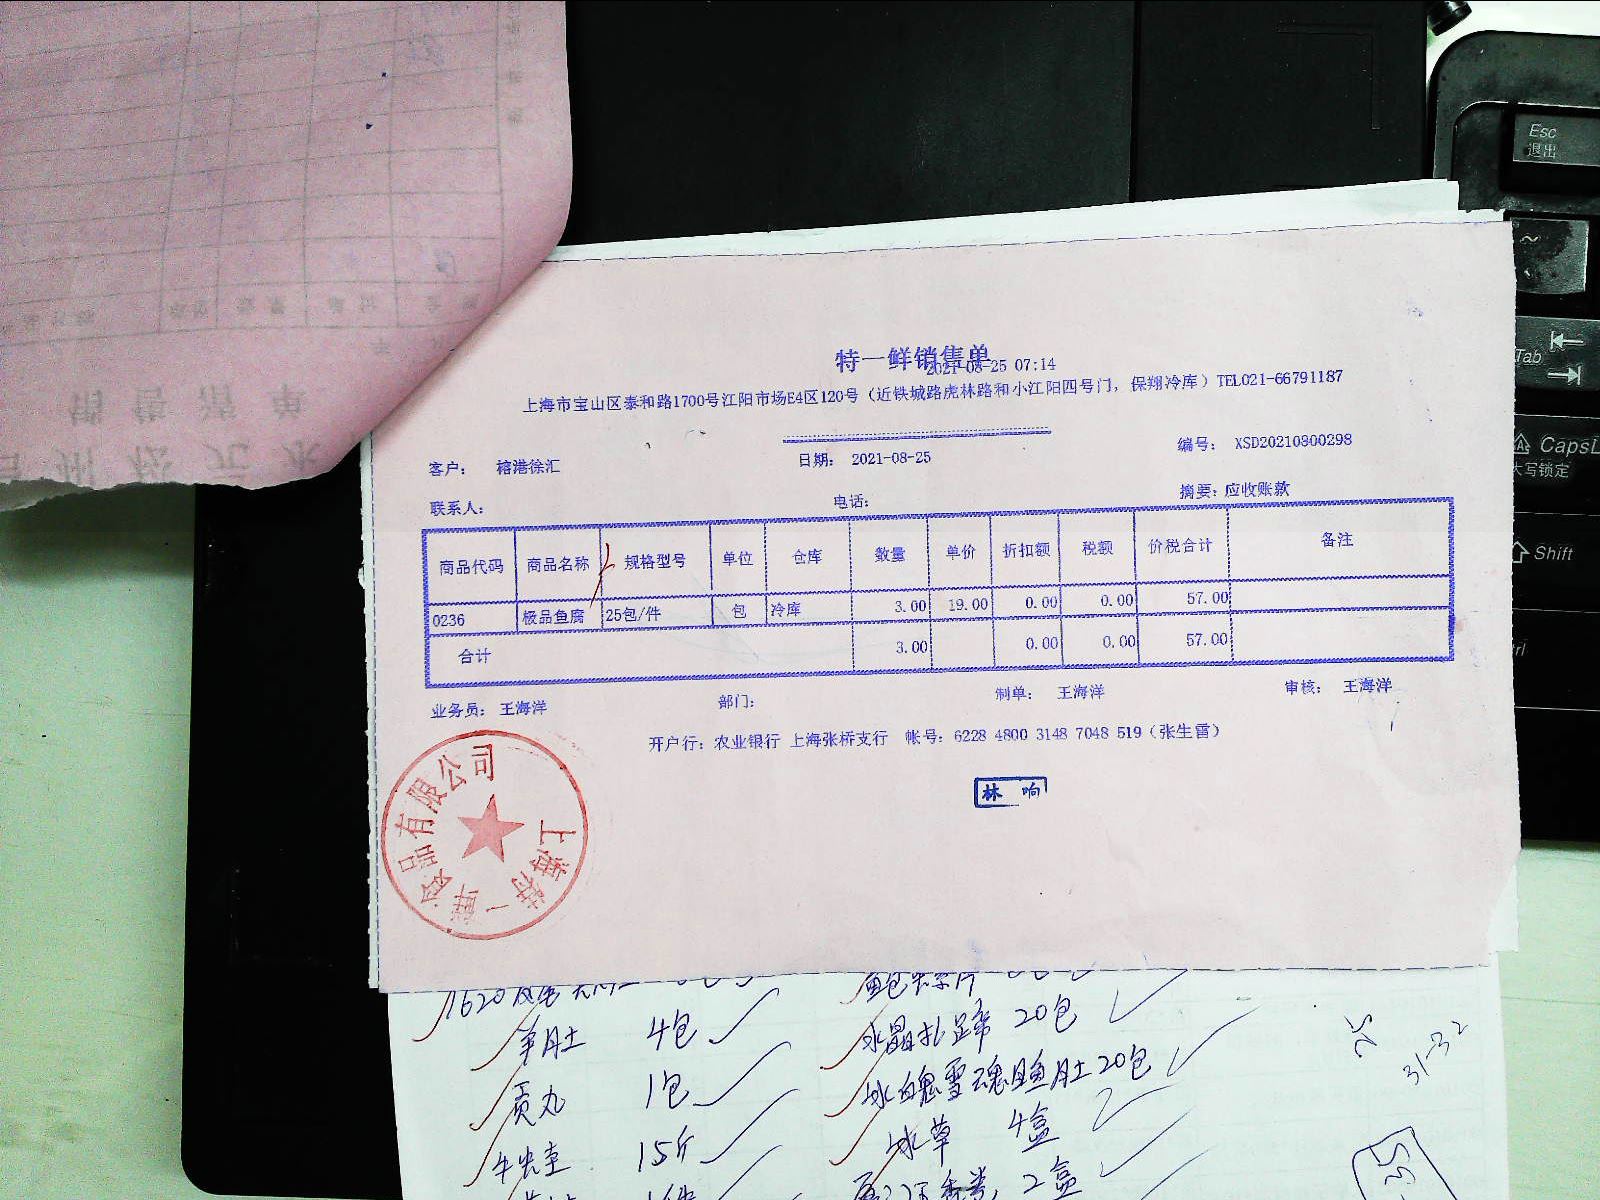 特一鲜销售单
2021-08-25 07:14
上海市宝山区泰和路1700号江阳市场E4区120号（近铁城路虎林路和小江阳四号门，保翔冷库）TEL021-66791187
客户： 榕港徐汇 日期： 2021-08-25 编号： XSD20210800298
联系人： 电话： 摘要：应收账款
商品代码 商品名称 规格型号 单位 仓库 数量 单价 折扣额 税额 价税合计 备注
0236 极品鱼腐 25包/件 包 冷库 3.00 19.00 0.00 0.00 57.00
合计 3.00 0.00 0.00 57.00
业务员： 王海洋 部门： 制单： 王海洋 审核： 王海洋
开户行：农业银行 上海张桥支行 帐号：6228 4800 3148 7048 519（张生雷）
林 响
上海特一鲜食品有限公司
羊肚 4包 水晶扒蹄 20包
贡丸 1包 20包
15斤 冰草 4盒
2盒
25
31-32
35
销售清单
Esc
退出
~
Tab
CapsL
大写锁定
Shift